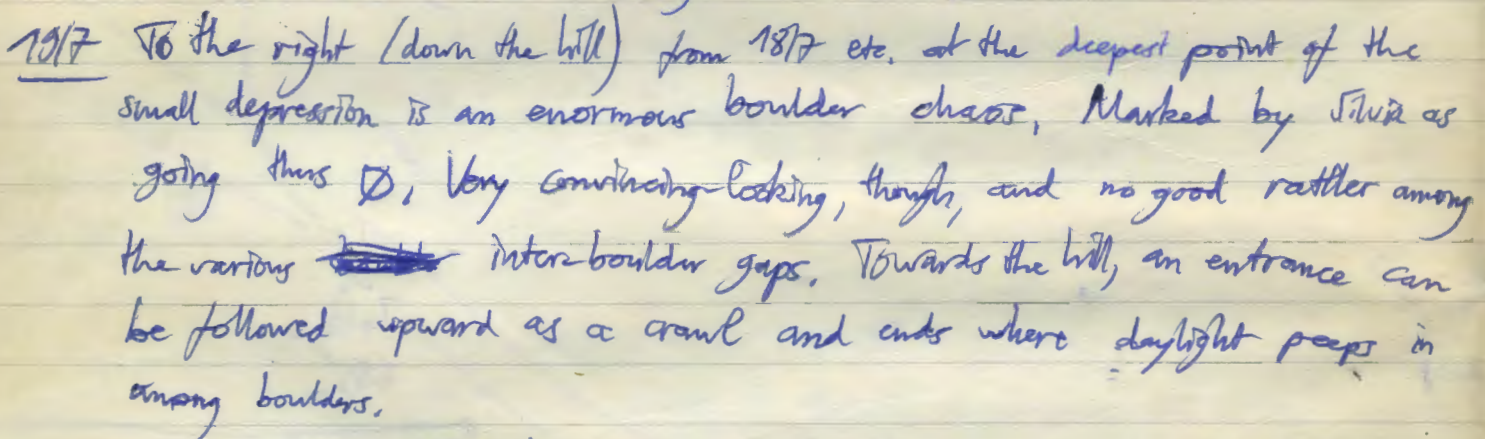 19/7 To the right (down the hill) from 18/7 etc. at the deepest point of the
small depression is an enormous boulder chaos. Marked by Silvia as
going thus ∅. Very convincing-looking, though, and no good rattler among
the various inter-boulder gaps. Towards the hill, an entrance can
be followed upward as a crawl and ends where daylight peeps in
among boulders.